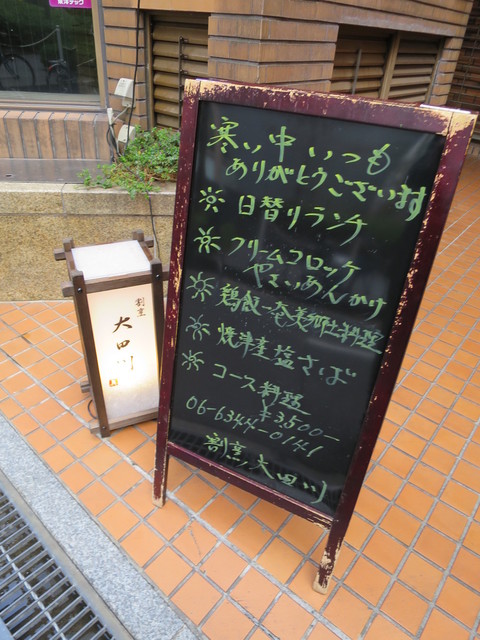 寒い中いつも
ありがとうございます
日替りランチ
クリームコロッケ
やさいあんかけ
鶏飯－奄美郷土料理
焼津産塩さば
コース料理
¥3,500-
06-6344-0141
割烹 大田川
割烹
大田川